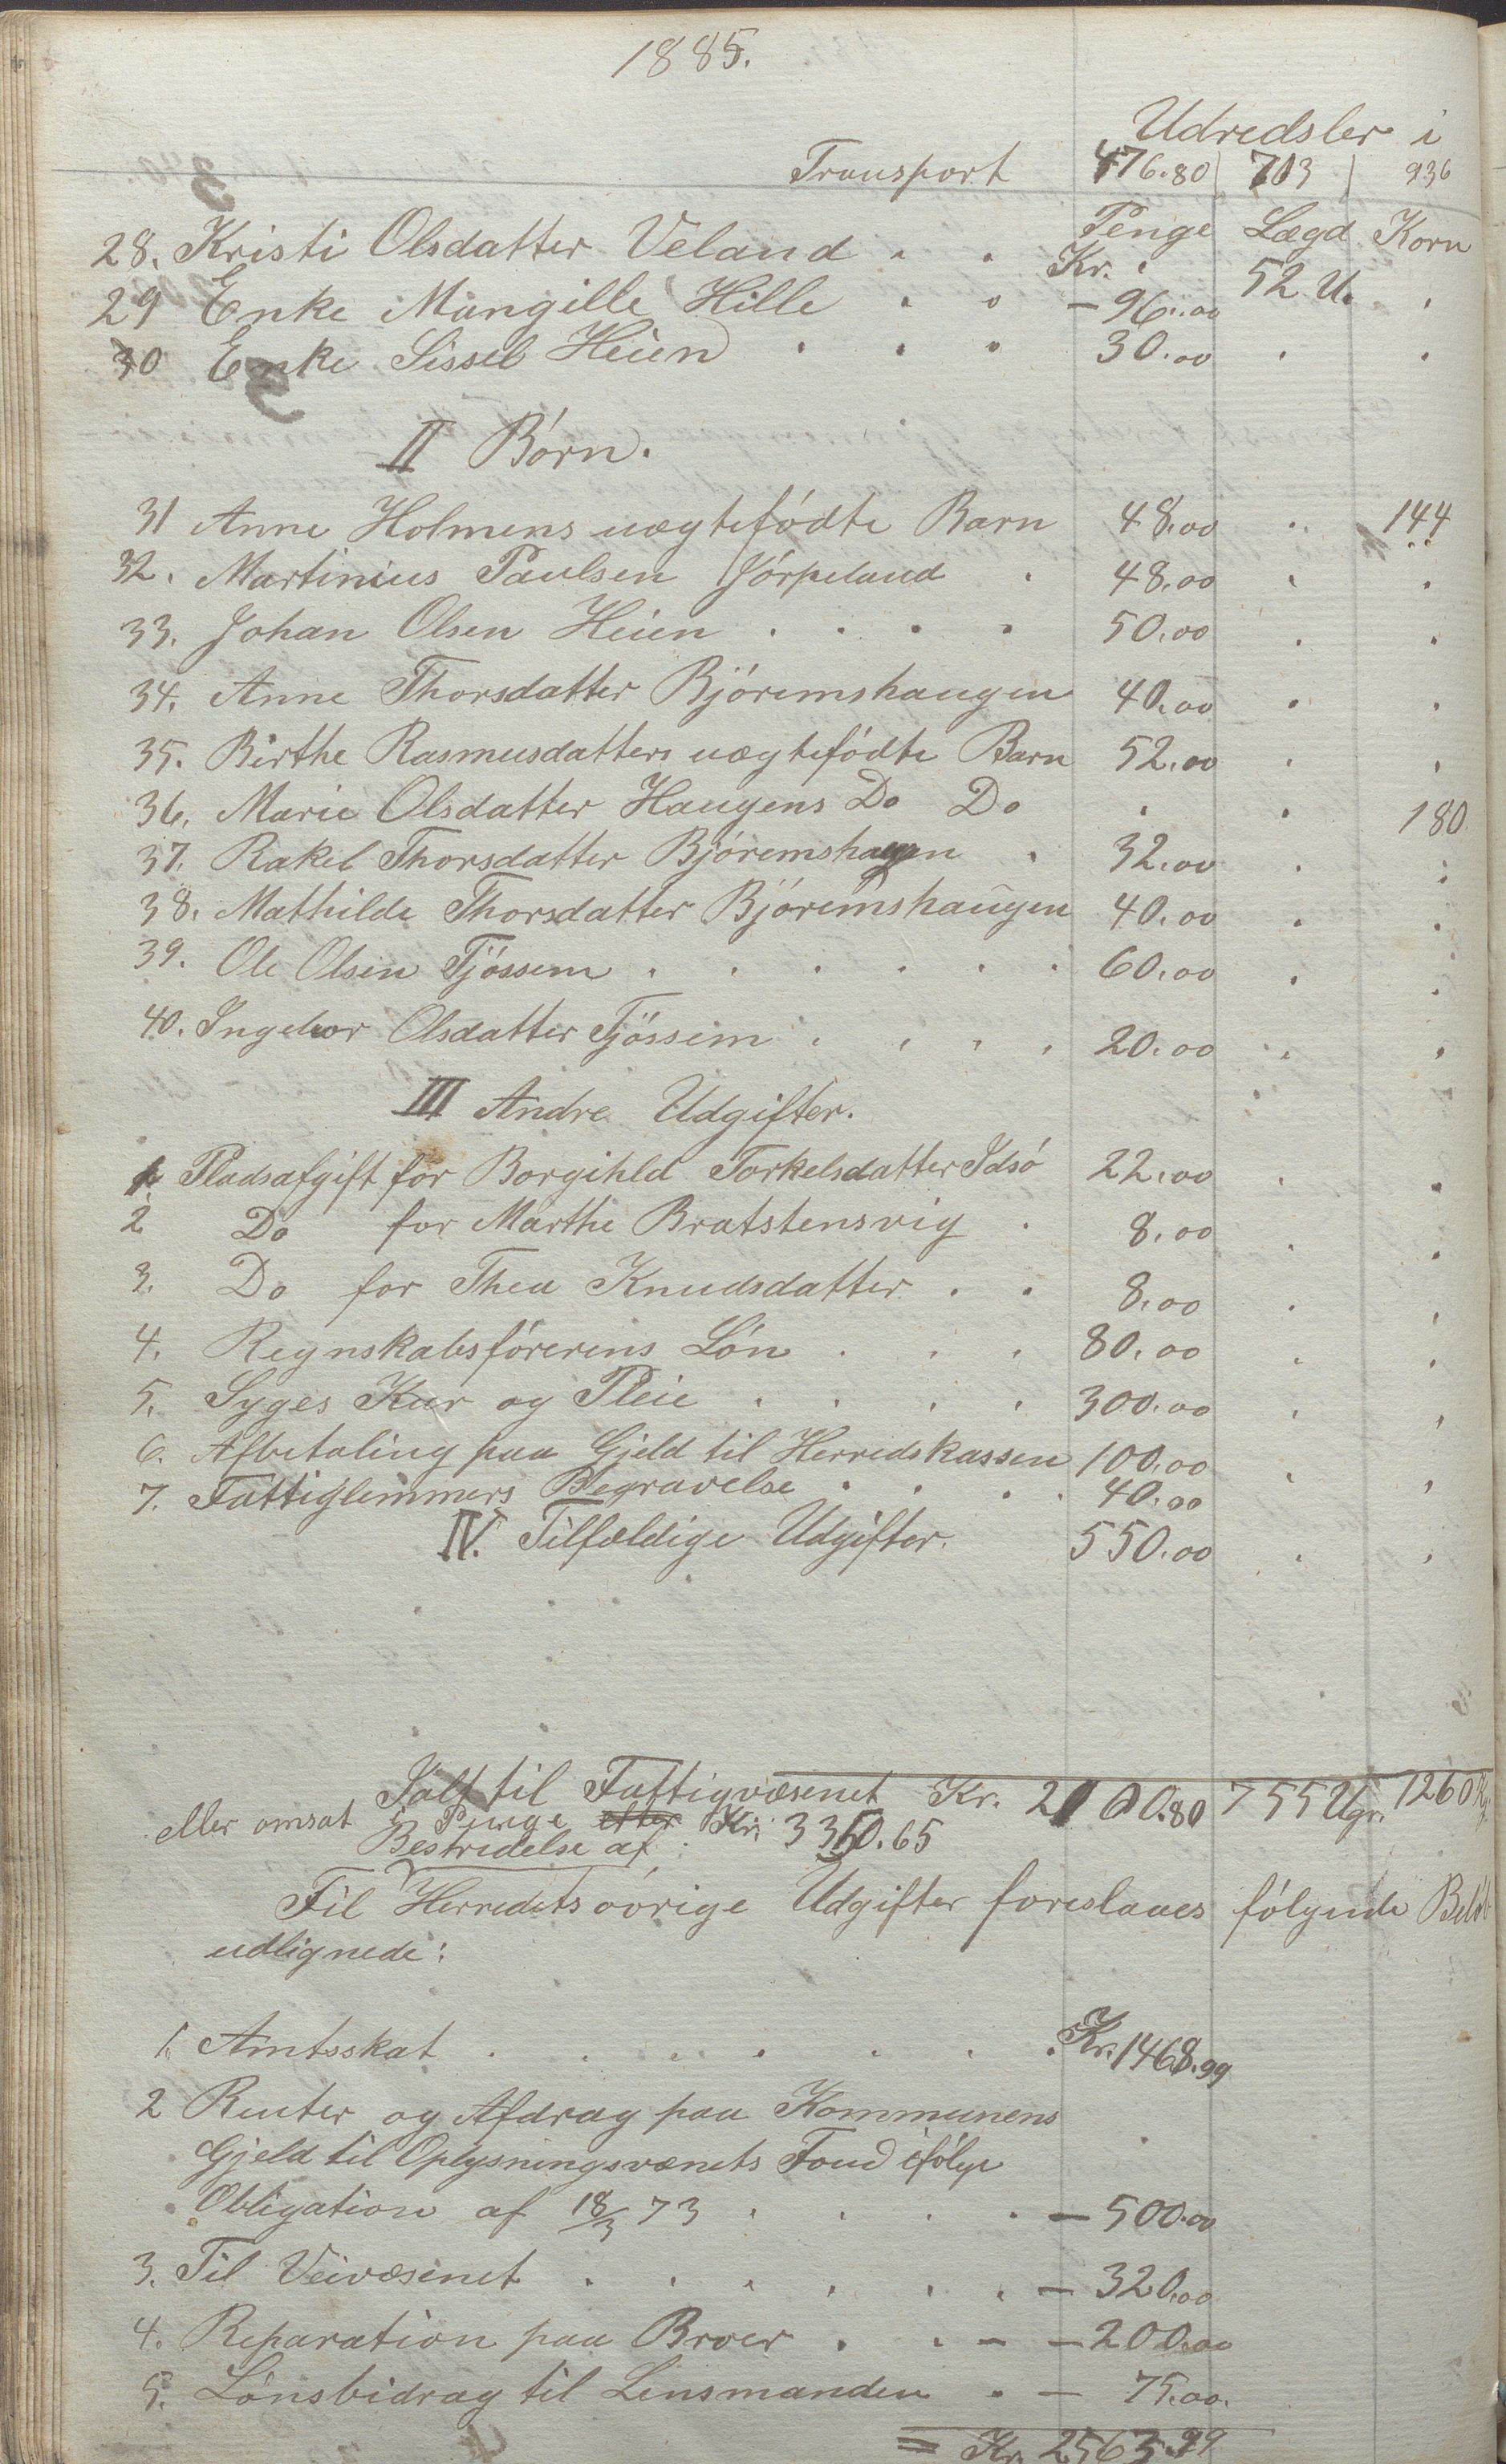 1885.
Udredsler i
Transport 476.80 703 936
Penge Lægd Korn
28. Kristi Olsdatter Veland . . Kr. . 52 U. .
29 Enke Mangille Hille . . — 96.00
30 Enke Sissel Heien . . . 30.00 . .
II Børn.
31 Anne Holmens uægtefødte Barn 48.00 . 144
32. Martinius Paulsen Jørpeland . 48.00 . .
33. Johan Olsen Heien . . . . 50.00 . .
34. Anne Thorsdatter Bjøremshaugen 40.00 . .
35. Birthe Rasmusdatters uægtefødte Barn 52.00 . .
36. Marie Olsdatter Haugens Do Do . . 180
37. Rakel Thorsdatter Bjøremshaugen . 32.00 . .
38. Mathilde Thorsdatter Bjøremshaugen 40.00 . .
39. Ole Olsen Tjøssem . . . . . . 60.00 . .
40. Ingebor Olsdatter Tjøssem . . . . 20.00 . .
III Andre Udgifter.
1. Pladsafgift for Borgihld Torkelsdatter Idsø 22.00 . .
2 Do for Marthe Bratstensvig . 8.00 . .
3. Do for Thea Knudsdatter . . 8.00 . .
4. Regnskabsførerens Løn . . . 80.00 . .
5. Syges Kur og Pleie . . . . 300.00 . .
6. Afbetaling paa Gjeld til Herredskassen 100.00 . .
7. Fattiglemmers Begravelse . . . 40.00
IV. Tilfældige Udgifter. 550.00 . .
Ialt til Fattigvæsenet Kr. 2100.80 755 Ugr. 1260 Kg.
eller omsat i Penge efter Kr. 3350.65
Bestridelse af
Til Herredets øvrige Udgifter foreslaaes følgende Beløb
udlignede:
1. Amtsskat . . . . . . . Kr. 1468.99
2 Renter og Afdrag paa Kommunens
Gjeld til Oplysningsvænets Fond ifølge
Obligation af 18/3 73 . . . . — 500.00
3. Til Veivæsenet . . . . . . — 320.00
4. Reparation paa Broer . . — — 200.00
5. Lønsbidrag til Lensmanden . — 75.00.
= Kr. 2563.99